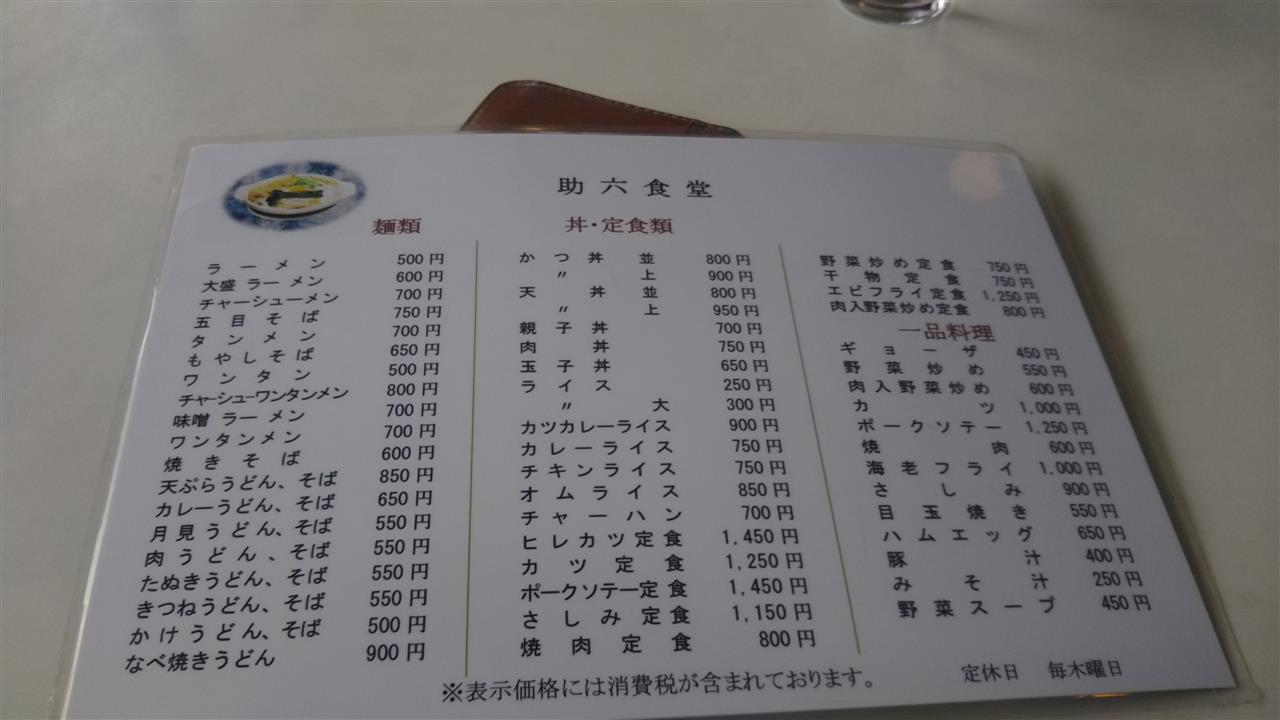 助六食堂
麺類
ラーメン 500円
大盛ラーメン 600円
チャーシューメン 700円
五目そば 750円
タンメン 700円
もやしそば 650円
ワンタン 500円
チャーシューワンタンメン 800円
味噌ラーメン 700円
ワンタンメン 700円
焼きそば 600円
天ぷらうどん、そば 850円
カレーうどん、そば 650円
月見うどん、そば 550円
肉うどん、そば 550円
たぬきうどん、そば 550円
きつねうどん、そば 550円
かけうどん、そば 500円
なべ焼きうどん 900円
丼・定食類
かつ丼 並 800円
〃 上 900円
天丼 並 800円
〃 上 950円
親子丼 700円
肉丼 750円
玉子丼 650円
ライス 250円
〃 大 300円
カツカレーライス 900円
カレーライス 750円
チキンライス 750円
オムライス 850円
チャーハン 700円
ヒレカツ定食 1,450円
カツ定食 1,250円
ポークソテー定食 1,450円
さしみ定食 1,150円
焼肉定食 800円
野菜炒め定食 750円
干物定食 750円
エビフライ定食 1,250円
肉入野菜炒め定食 800円
一品料理
ギョーザ 450円
野菜炒め 550円
肉入野菜炒め 600円
カツ 1,000円
ポークソテー 1,250円
焼肉 600円
海老フライ 1,000円
さしみ 900円
目玉焼き 550円
ハムエッグ 650円
豚汁 400円
みそ汁 250円
野菜スープ 450円
※表示価格には消費税が含まれております。
定休日 毎木曜日